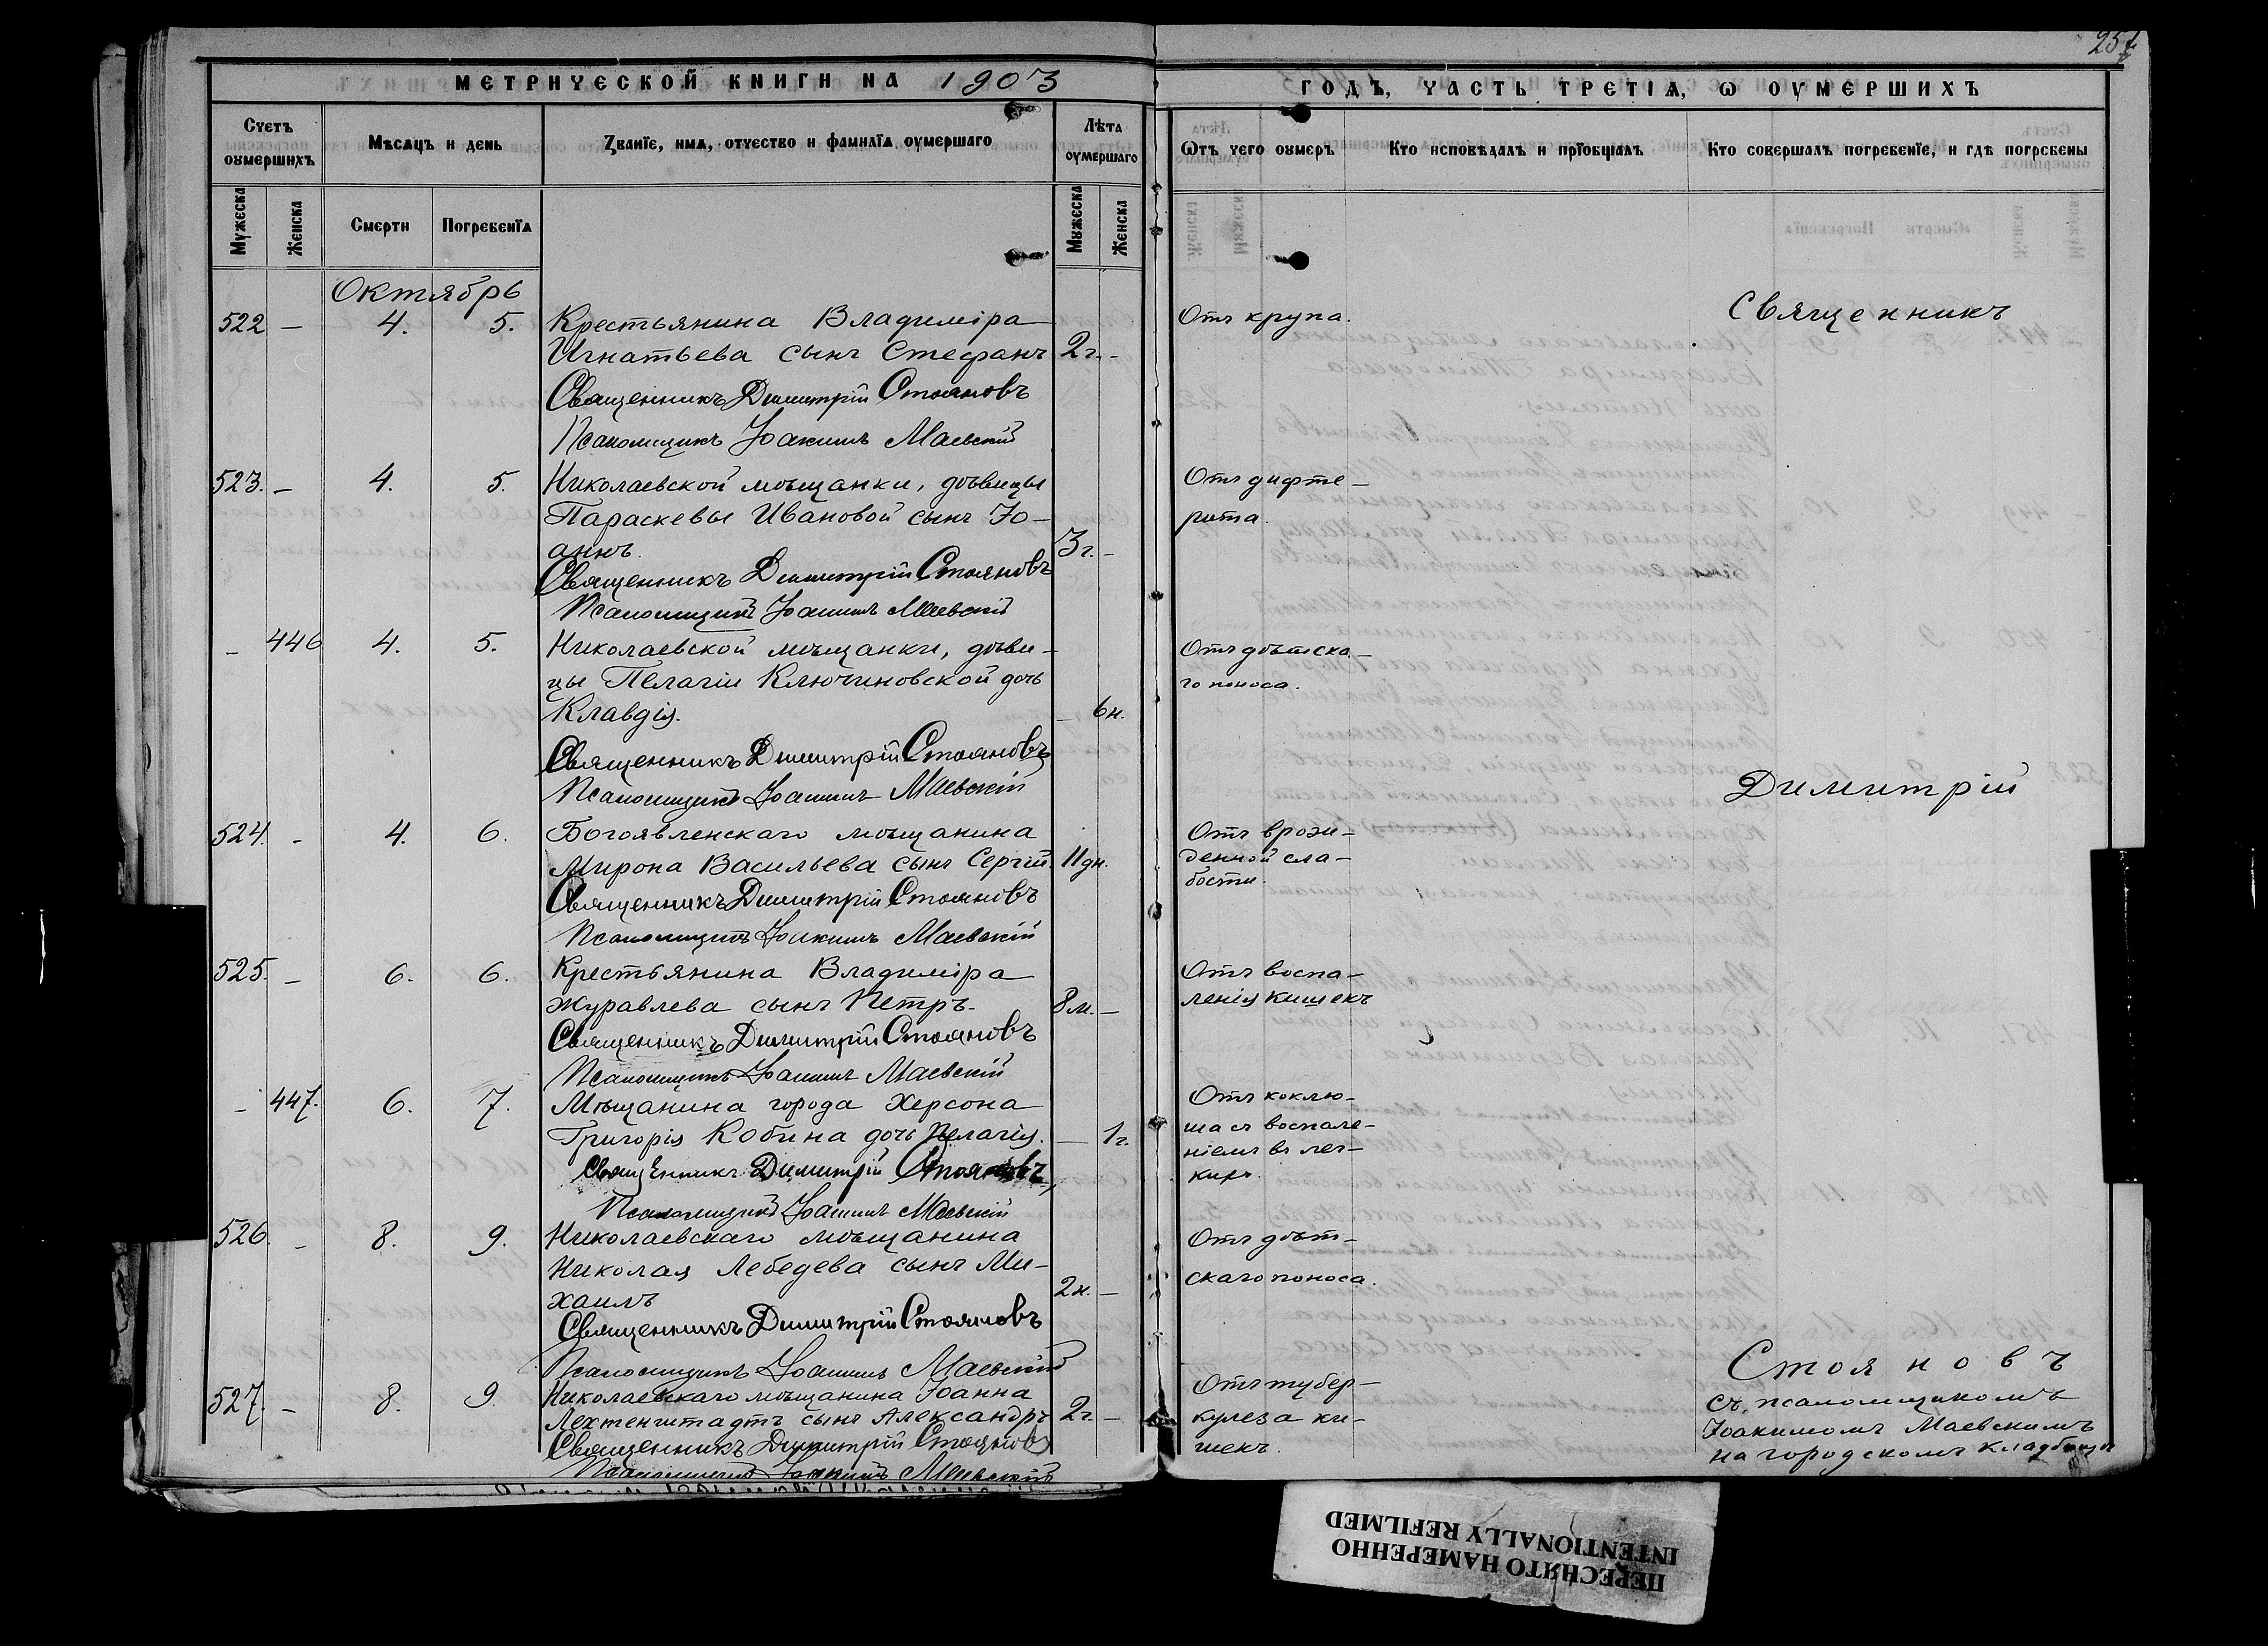 257
МЕТРИЧЕСКОЙ КНИГИ НА 1903
ГОДЪ, ЧАСТЬ ТРЕТІѦ, Ѡ ОУМЕРШИХЪ
Счетъ оумершихъ
Мѣсѧцъ и день
Званїе, имѧ, отчество и фамилїѧ оумершаго
Лѣта оумершаго
Ѿтъ чего оумеръ
Кто исповѣдалъ и прїобщалъ
Кто совершалъ погребенїе, и гдѣ погребены
Мужеска
Женска
Смерти
Погребенїѧ
Мужеска
Женска
Октябрь
522 — 4. 5. Крестьянина Владиміра
Игнатьева сынъ Стефанъ 2г. -
Священникъ Димитрій Стояновъ
Псаломщикъ Іоакимъ Маевскій
Отъ крупа.
523. — 4. 5. Николаевской мѣщанки, дѣвицы
Параскевы Ивановой сынъ Іо-
аннъ. 3г. -
Священникъ Димитрій Стояновъ
Псаломщикъ Іоакимъ Маевскій
Отъ дифте-
рита.
— 446 4. 5. Николаевской мѣщанки, дѣви-
цы Пелагіи Ключиновской дочь
Клавдія. — 6н.
Священникъ Димитрій Стояновъ
Псаломщикъ Іоакимъ Маевскій
Отъ дѣтска-
го поноса.
524. - 4. 6. Богоявленскаго мѣщанина
Мирона Васильева сынъ Сергій. 11дн.
Священникъ Димитрій Стояновъ
Псаломщикъ Іоакимъ Маевскій
Отъ врож-
денной сла-
бости.
525. — 6. 6. Крестьянина Владиміра
Журавлева сынъ Петръ. 8м. —
Священникъ Димитрій Стояновъ
Псаломщикъ Іоакимъ Маевскій
Отъ воспа-
ленія кишекъ
— 447. 6. 7. Мѣщанина города Херсона
Григорія Кобина дочь Пелагія. — 1г.
Священникъ Димитрій Стояновъ
Псаломщикъ Іоакимъ Маевскій
Отъ коклю-
ша съ воспале-
ніемъ въ лег-
кихъ.
526. - 8. 9. Николаевскаго мѣщанина
Николая Лебедева сынъ Ми-
хаилъ 2н. —
Священникъ Димитрій Стояновъ
Псаломщикъ Іоакимъ Маевскій
Отъ дѣт-
скаго поноса.
527. — 8. 9. Николаевскаго мѣщанина Іоанна
Лехтенштадтъ сынъ Александръ 2г. —
Священникъ Димитрій Стояновъ
Псаломщикъ Іоакимъ Маевскій
Отъ тубер-
кулеза ки-
шекъ.
Священникъ
Димитрій
Стояновъ
съ псаломщикомъ
Іоакимомъ Маевскимъ
на городскомъ кладбищѣ
ПЕРЕСНЯТО НАМЕРЕННО
INTENTIONALLY REFILMED